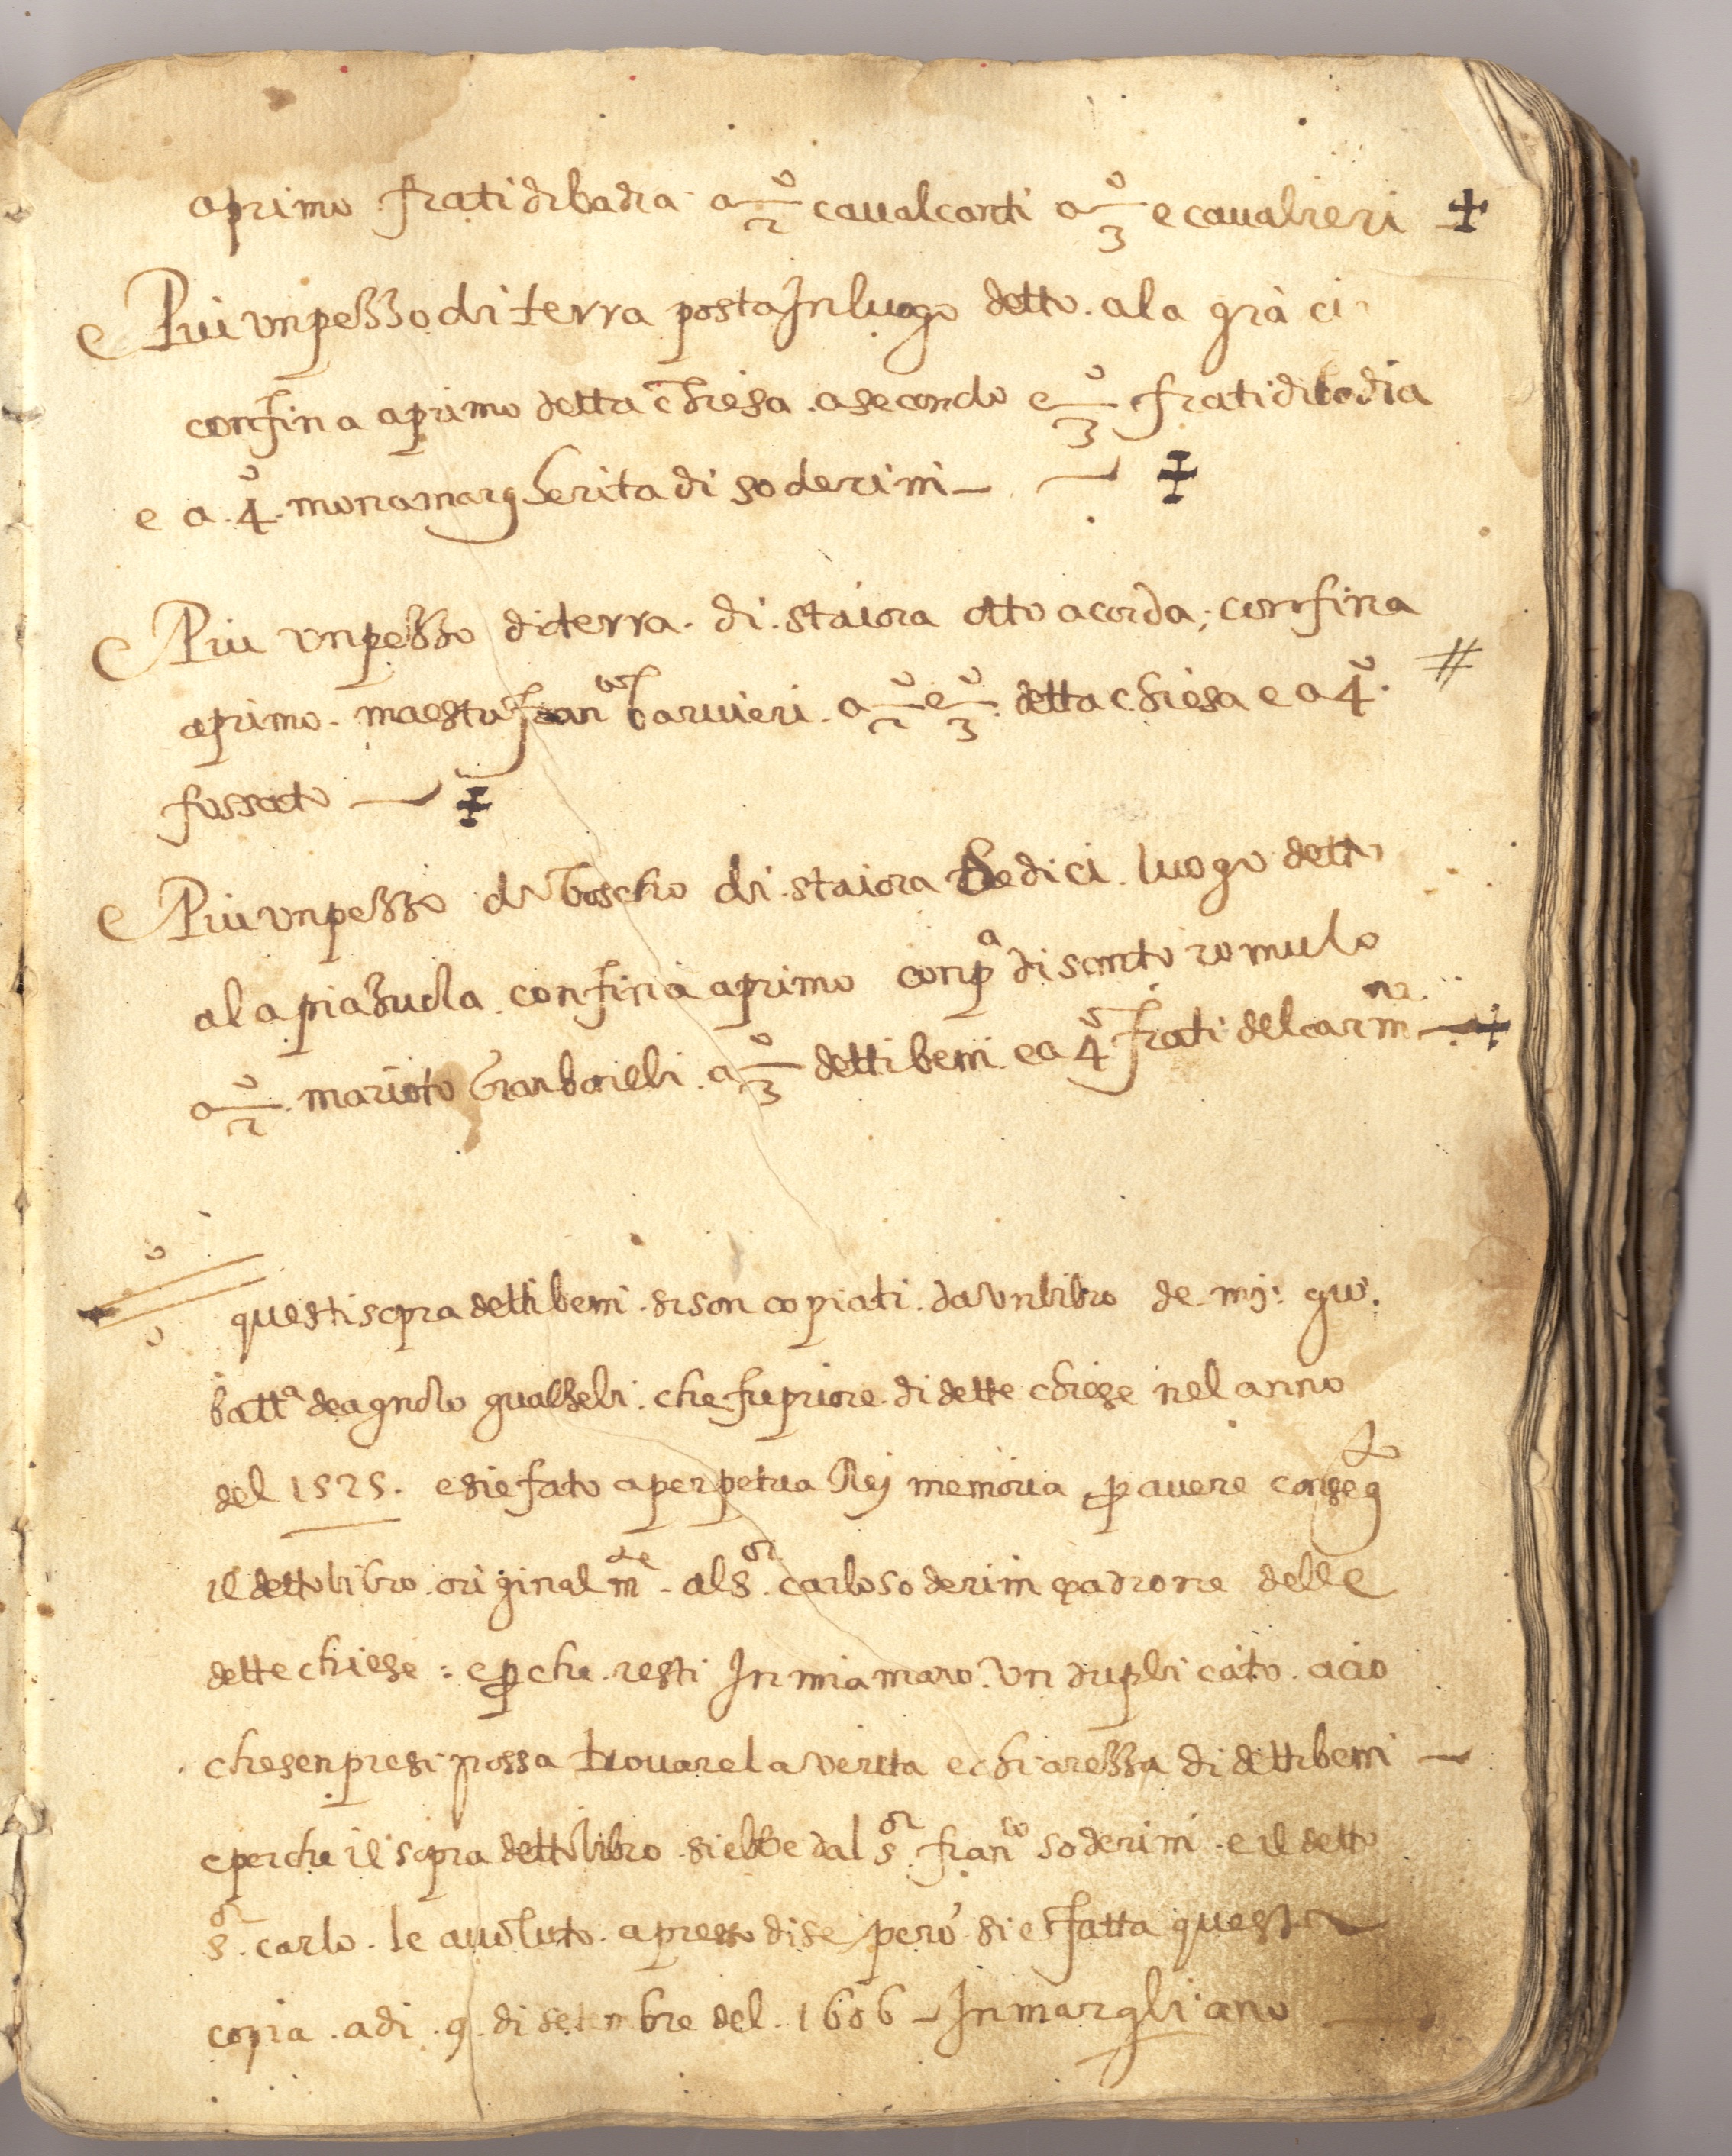 a primo frati di badia a 2º cavalcanti a 3º e cavalieri ✠
E Piu un pezzo di terra posta In luogo detto. ala grā ci
confina a primo detta chiesa. a secondo e 3º frati di badia
e a. 4º. mona margherita di soderini — — ✠
E Piu un pezzo di terra. di. staiora otto a corda; confina
a primo. maestro franco barvieri. a 2º e 3º. detta chiesa e a 4º. #
fossato — ✠
E Piu un pezzo di boscho di. staiora sedici. luogo detto
ala piazuola. confina a primo conpa di santo romulo
a 2º. marioto Gianbonelli. a 3º detti beni. e a 4º frati del carmne — ✠
questi sopra detti beni. si son copiati. da un libro de mʒ: gio.
batta de agnolo gualtieri. che fu priore. di dette chiese nel anno
del 1525. e si e fato a perpetua Rei memoria p avere consegto
il detto libro. originalmte. al Sor. carlo soderini padrone delle
dette chiese: e p che. resti In mia mano. un duplicato. acio
che senpre si possa trovare la verita e chiarezza di detti beni —
e perche il sopra detto libro si ebbe dal sor. franco soderini. e il detto
sor. carlo. le auoluto. apresso di se pero si e fatta questa
copia. adi. 9. di setembre del. 1606 — In margliano —